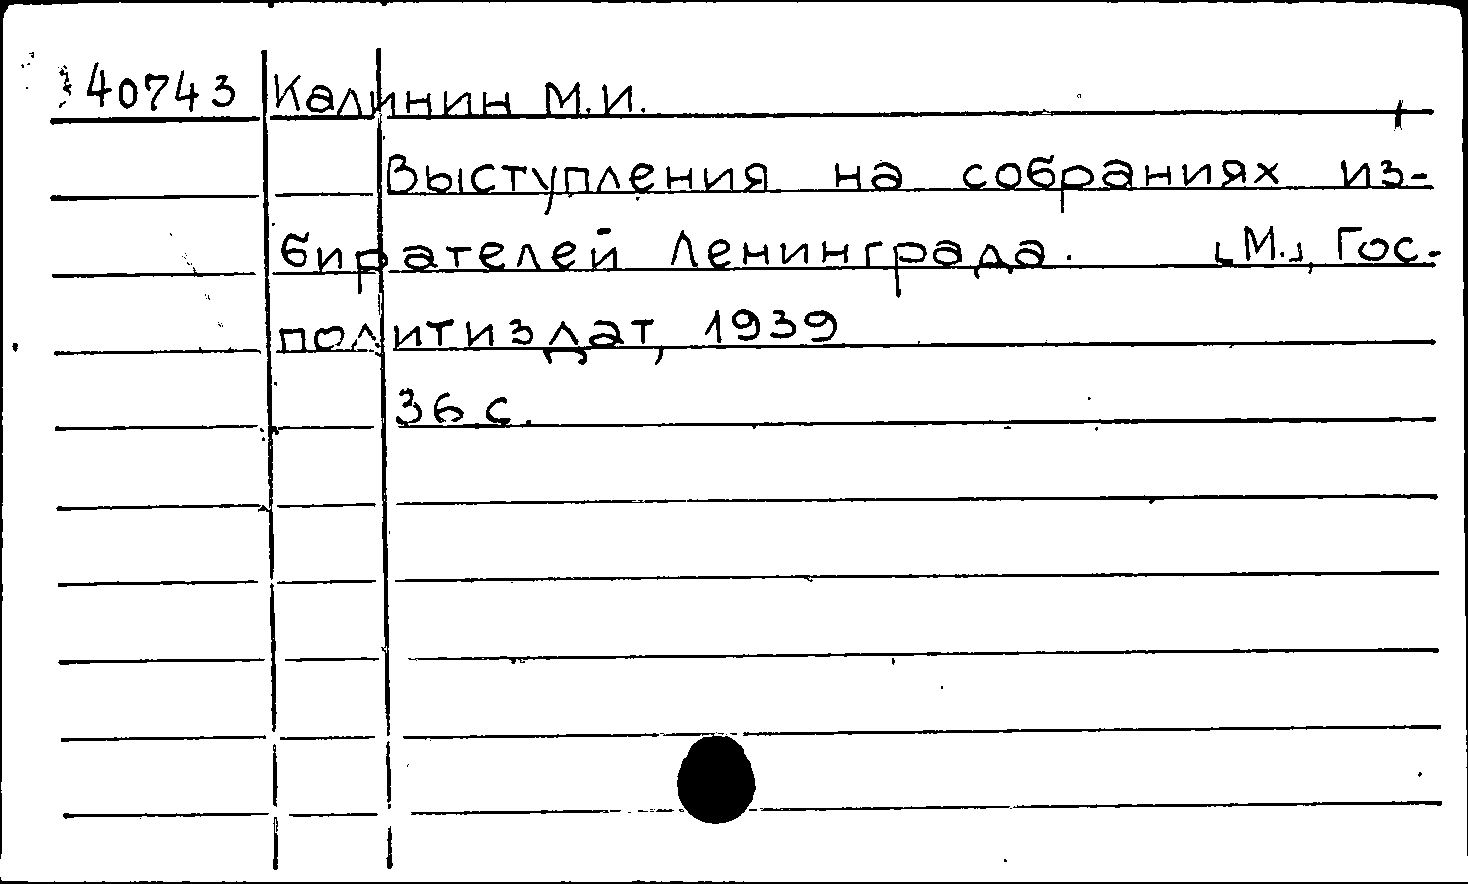 40743 Калинин М.И.
Выступления на собраниях из-
бирателей Ленинграда. [М.], Гос-
политиздат, 1939
36 с.